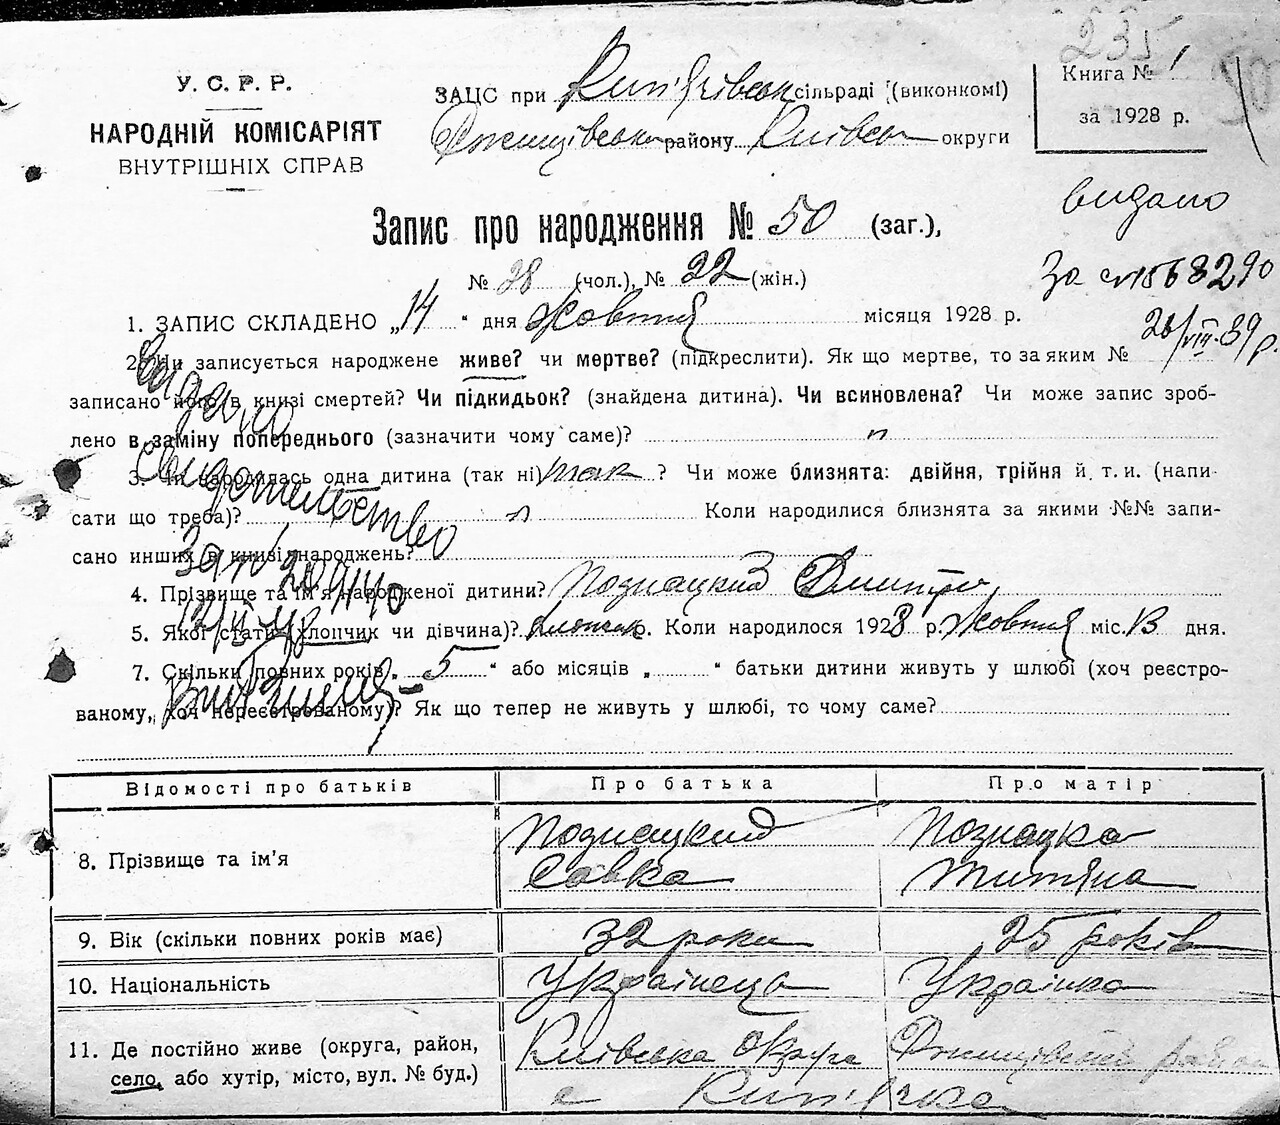 235
50
У. С. Р. Р.
НАРОДНІЙ КОМІСАРІЯТ
ВНУТРІШНІХ СПРАВ
ЗАЦС при сільраді (виконкомі)
району Київськ округи
Книга № 1
за 1928 р.
видано
за
Запис про народження № 50 (заг.),
№ 28 (чол.), № 22 (жін.)
1. ЗАПИС СКЛАДЕНО „14 " дня Жовтня місяця 1928 р.
2. Чи записується народжене живе? чи мертве? (підкреслити). Як що мертве, то за яким №
записано його в книзі смертей? Чи підкидьок? (знайдена дитина). Чи всиновлена? Чи може запис зроб-
лено в заміну попереднього (зазначити чому саме)? "
3. Чи народилась одна дитина (так ні) так ? Чи може близнята: двійня, трійня й. т. и. (напи-
сати що треба)? " Коли народилися близнята за якими №№ запи-
сано инших в книзі народжень?
видано
Свидотельство
За №
4. Прізвище та ім'я народженої дитини? Познацкий Дмитро
5. Якої стати (хлопчик чи дівчина)? хлопчик. Коли народилося 1928 р. Жовтня міс. 13 дня.
7. Скільки повних років „ 5 " або місяців „ " батьки дитини живуть у шлюбі (хоч реєстро-
ваному, хоч нереєстрованому)? Як що тепер не живуть у шлюбі, то чому саме?
Відомості про батьків Про батька Про матір
8. Прізвище та ім'я Познацкий Савка Познацка Титяна
9. Вік (скільки повних років має) 32 роки 25 років
10. Національність Українець Українка
11. Де постійно живе (округа, район, Київська Округа район
село, або хутір, місто, вул. № буд.) с